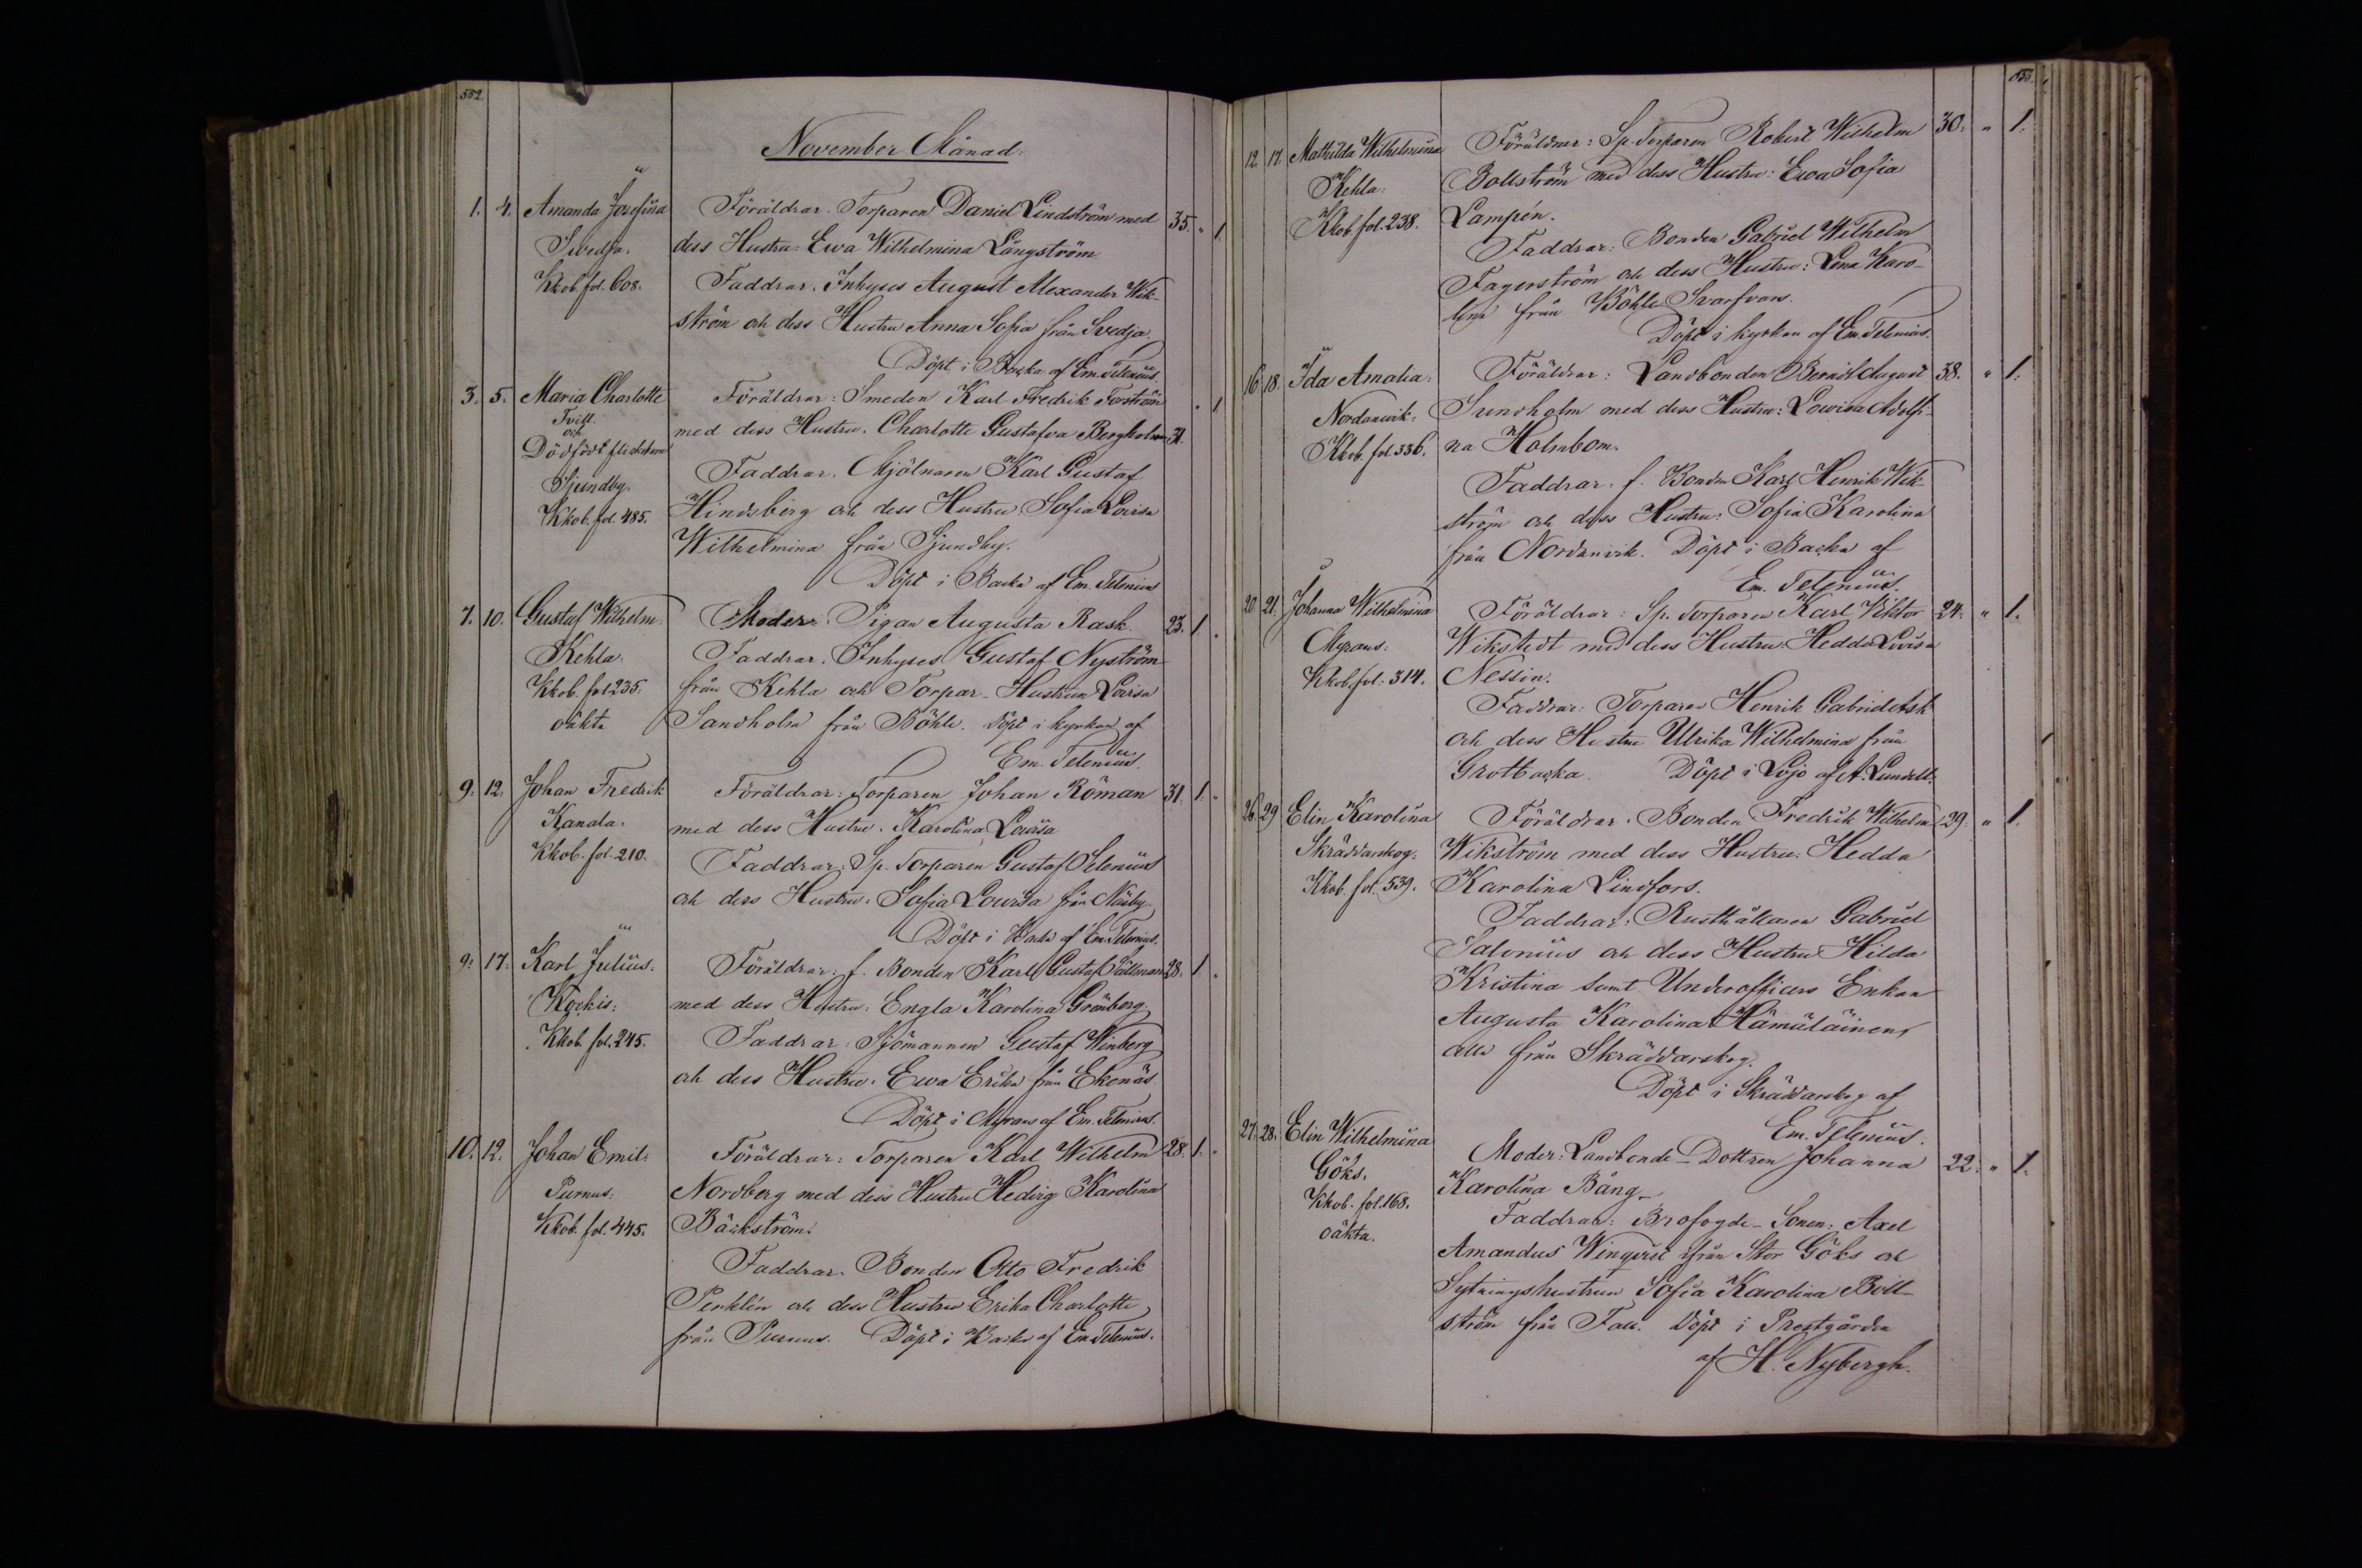 552
November Månad.
1. 4. Amanda Josefina Föräldrar. Torparen Daniel Lindström med 35. " 1.
Svedja. dess Hustru: Ewa Wilhelmina Långström
Kkob. fol. 608. Faddrar. Inhyses August Alexander Wik-
ström och dess Hustru Anna Sofia från Svedja.
Döpt i Backa af Em. Telenius.
3. 5. Maria Charlotte Föräldrar: Smeden Karl Fredrik Forström " 1
Tvill. med dess Hustru. Charlotte Gustafva Bergholm 31.
och
Dödfödt flickebarn
Sjundby. Faddrar. Mjölnaren Karl Gustaf
Kkob. fol. 485. Hindsberg och dess Hustru Sofia Lovisa
Wilhelmina från Sjundby.
Döpt i Backa af Em. Telenius
7. 10. Gustaf Wilhelm. Moder: Pigan Augusta Rask. 23. 1. "
Kehla. Faddrar. Inhyses Gustaf Nyström
Kkob. fol 235. från Kehla och Torpar-Hustrun Lovisa
oäkta Sandholm från Böhle. Döpt i kyrkan af
Em. Telenius.
9. 12. Johan Fredrik Föräldrar: Torparen Johan Röman 31. 1. "
Kanala. med dess Hustru. Karolina Lovisa
Kkob. fol. 210. Faddrar: Sp. Torparen Gustaf Selenius
och dess Hustru: Sofia Lovisa från Näsby.
Döpt i Backa af Em. Telenius.
9. 17. Karl Julius. Föräldrar: f. Bonden Karl Gustaf Tallman 28. 1. "
Kockis. med dess Hustru: Engla Karolina Grönberg
Kkob. fol. 245. Faddrar: Sjömannen Gustaf Winberg
och dess Hustru. Ewa Erika från Ekenäs
Döpt i Myrans af Em. Telenius.
10. 12. Johan Emil. Föräldrar: Torparen Karl Wilhelm 28. 1. "
Purnus. Nordberg med dess Hustru Hedvig Karolina
Kkob. fol. 445. Bäckström.
Faddrar. Bonden Otto Fredrik
Perklén och dess Hustru Erika Charlotte
från Purnus. Döpt i Backa af Em. Telenius.
553.
12. 17. Mathilda Wilhelmina Föräldrar: Sp. Torparen Robert Wilhelm 30. " 1.
Kehla. Bollström med dess Hustru: Ewa Sofia
Kkob. fol. 238. Lampén.
Faddrar: Bonden Gabriel Wilhelm
Fagerström och dess Hustru: Lena Karo-
lina från Böhle Svarfvars.
Döpt i kyrkan af Em. Telenius.
16. 18. Ida Amalia. Föräldrar: Landbonden Berndt August 38. " 1.
Nordanvik. Sundholm med dess Hustru: Lovisa Adolfi-
Kkob. fol 336. na Holmbom.
Faddrar. f. Bonden Karl Henrik Wik-
ström och dess Hustru: Sofia Karolina
från Nordanvik. Döpt i Backa af
Em. Telenius.
20. 21. Johanna Wilhelmina Föräldrar: Sp. Torparen Karl Viktor 24. " 1.
Myrans. Wikstedt med dess Hustru: Hedda Lovisa
Kkob. fol: 314. Nessin.
Faddrar: Torparen Henrik Gabriel Ask
och dess Hustru Ulrika Wilhelmina från
Grottbacka. Döpt i Lojo af A. Lundell.
26. 29 Elin Karolina Föräldrar. Bonden Fredrik Wilhelm 29. " 1.
Skräddarskog. Wikström med dess Hustru. Hedda
Kkob. fol. 539. Karolina Lindfors.
Faddrar: Rusthållaren Gabriel
Salonius och dess Hustru Hilda
Kristina samt Underofficers Enkan
Augusta Karolina Hämäläinen,
alla från Skräddarskog.
Döpt i Skräddarskog af
Em. Telenius.
27. 28. Elin Wilhelmina Moder: Landbonde-Dottren Johanna 22. " 1.
Göks. Karolina Bång.
Kkob. fol. 168. Faddrar: Brofogde-Sonen: Axel
oäkta. Amandus Winqvist ifrån Stor Göks och
Sytningshustrun Sofia Karolina Boll-
ström från Fall. Döpt i Prestgården
af H. Nybergh.